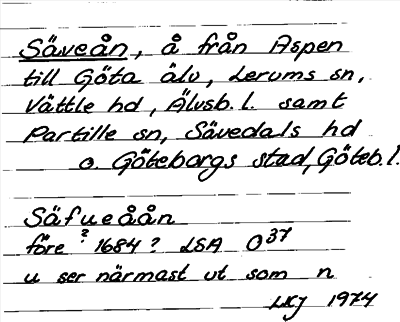 Säveån, å från Aspen
till Göta älv, Lerums sn,
Vättle hd, Älvsb. l. samt
Partille sn, Sävedals hd
o. Göteborgs stad, Göteb. l.
Säfueåån
före ? 1684 ? LSA O 37
u ser närmast ut som n
1974